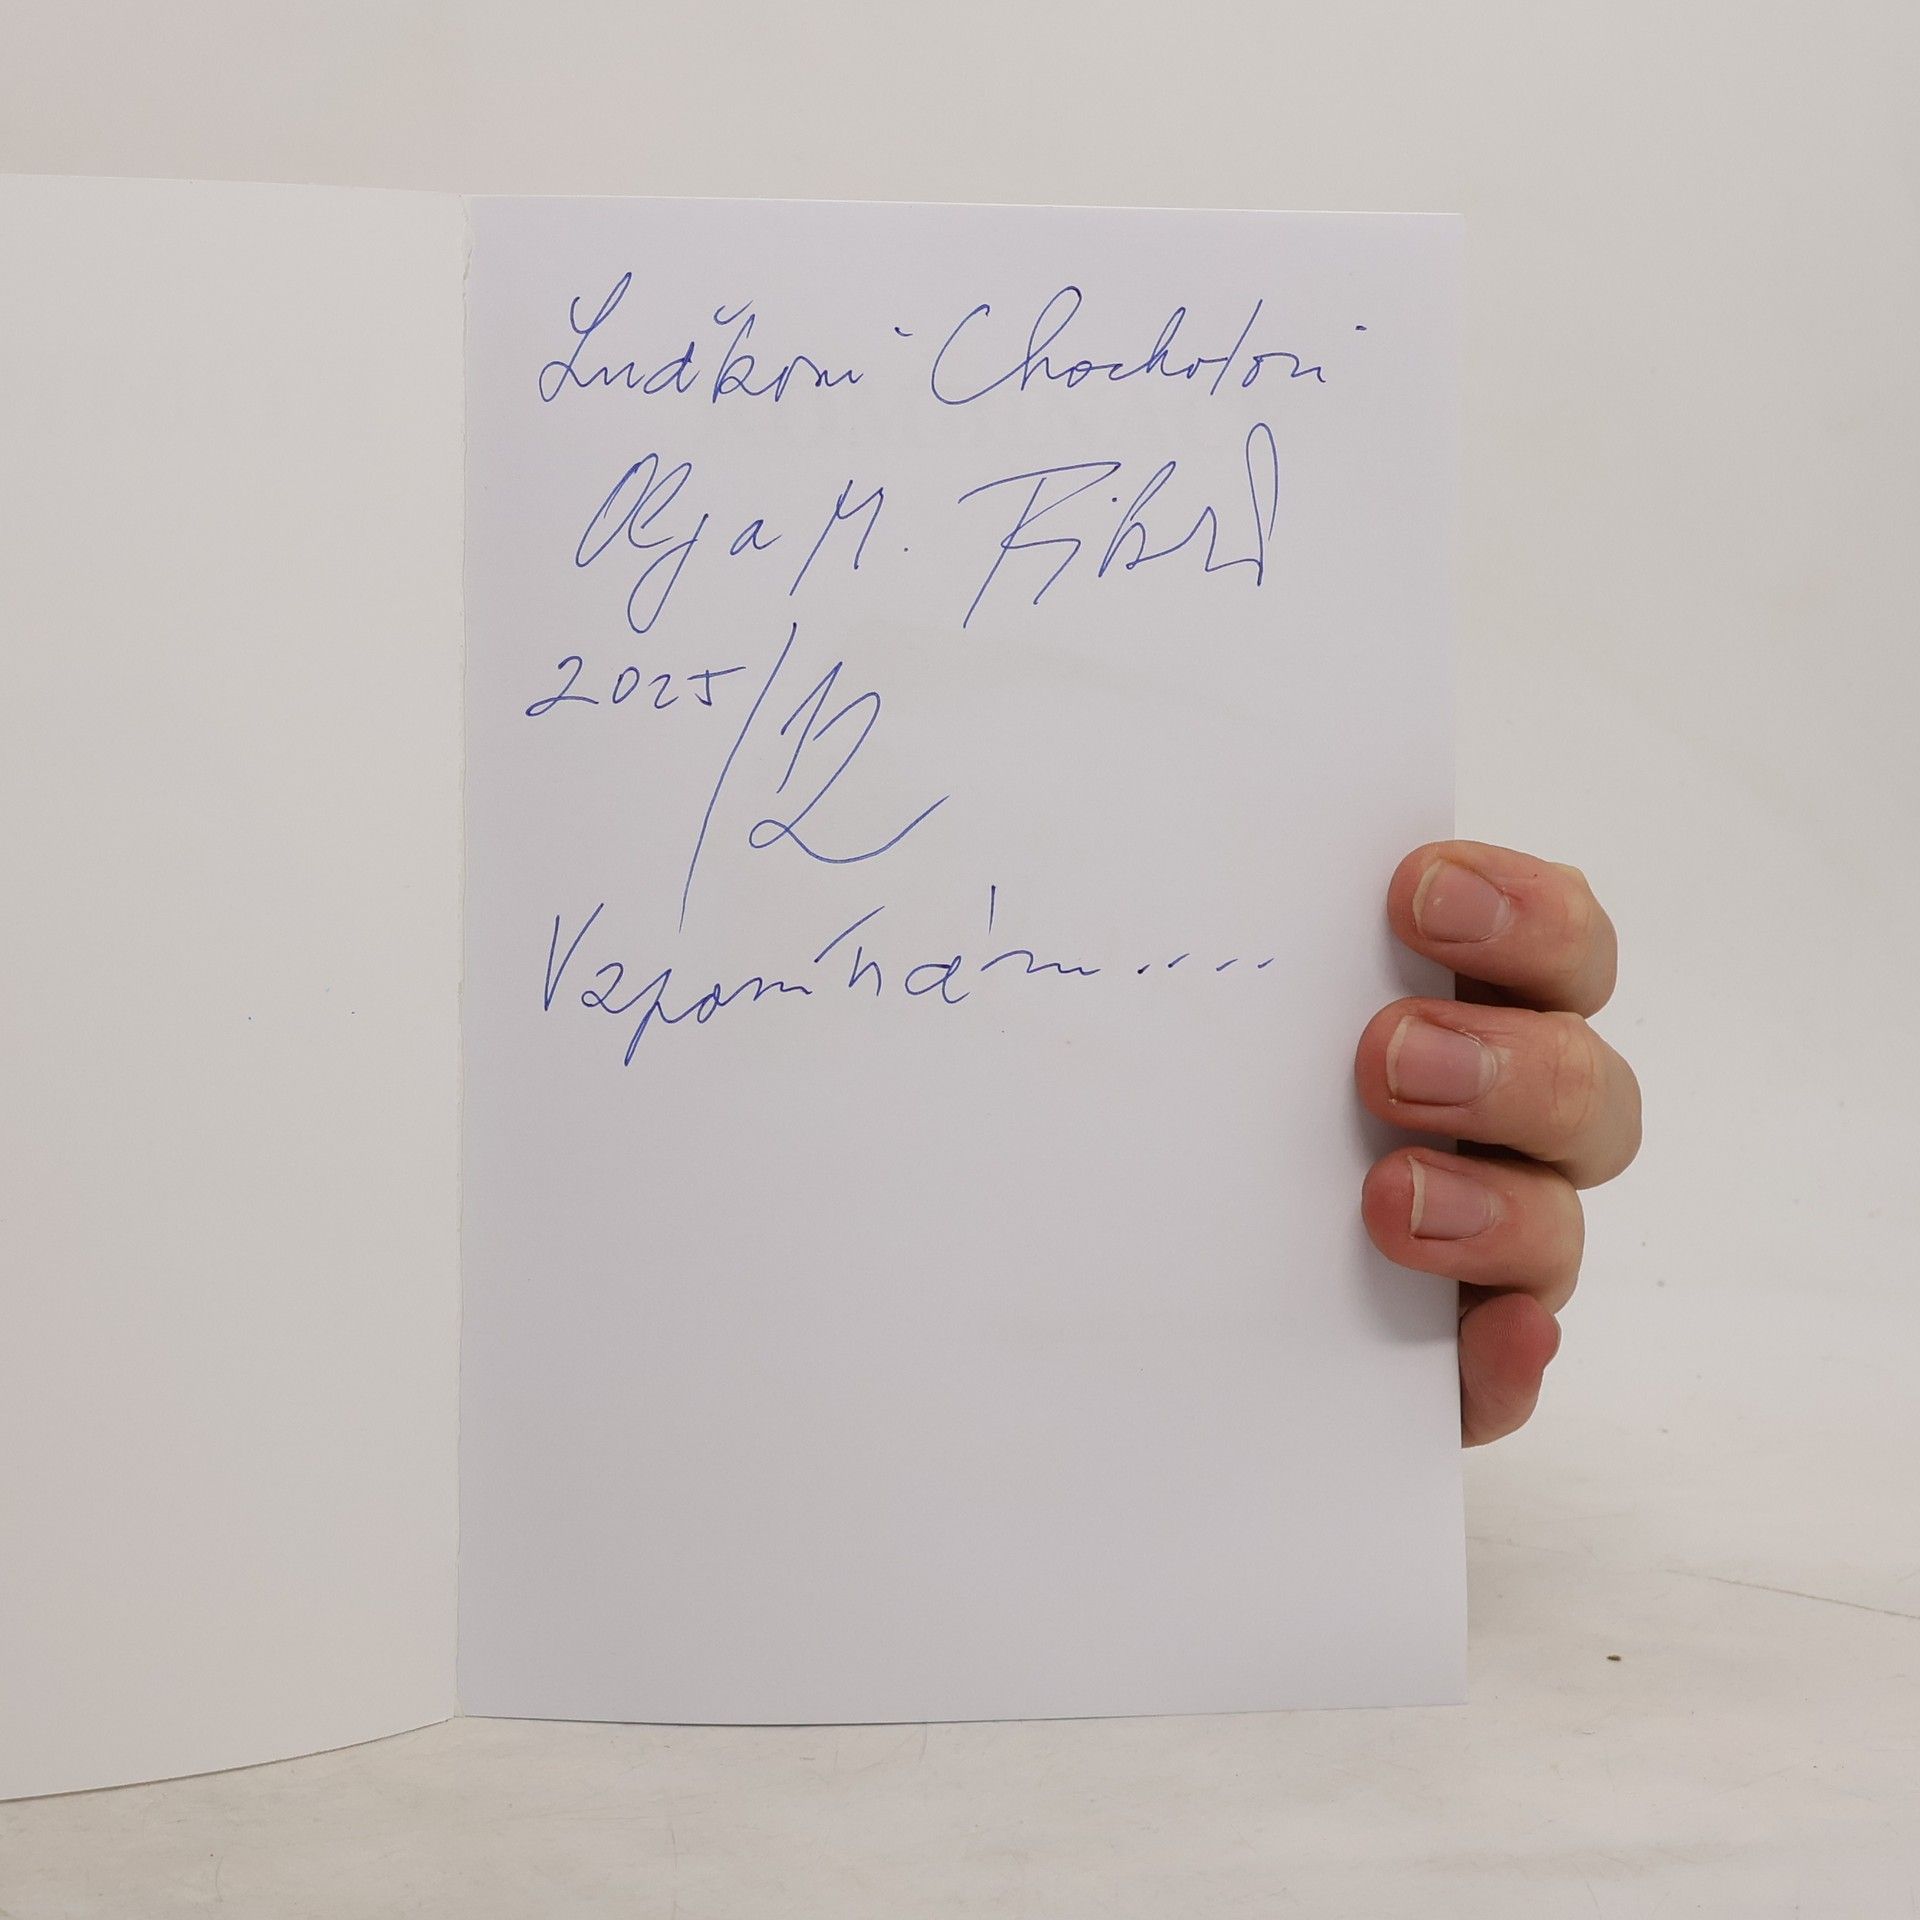 Luďkovi Chocholovi
Olga M.
2025/12
Vzpomínám....